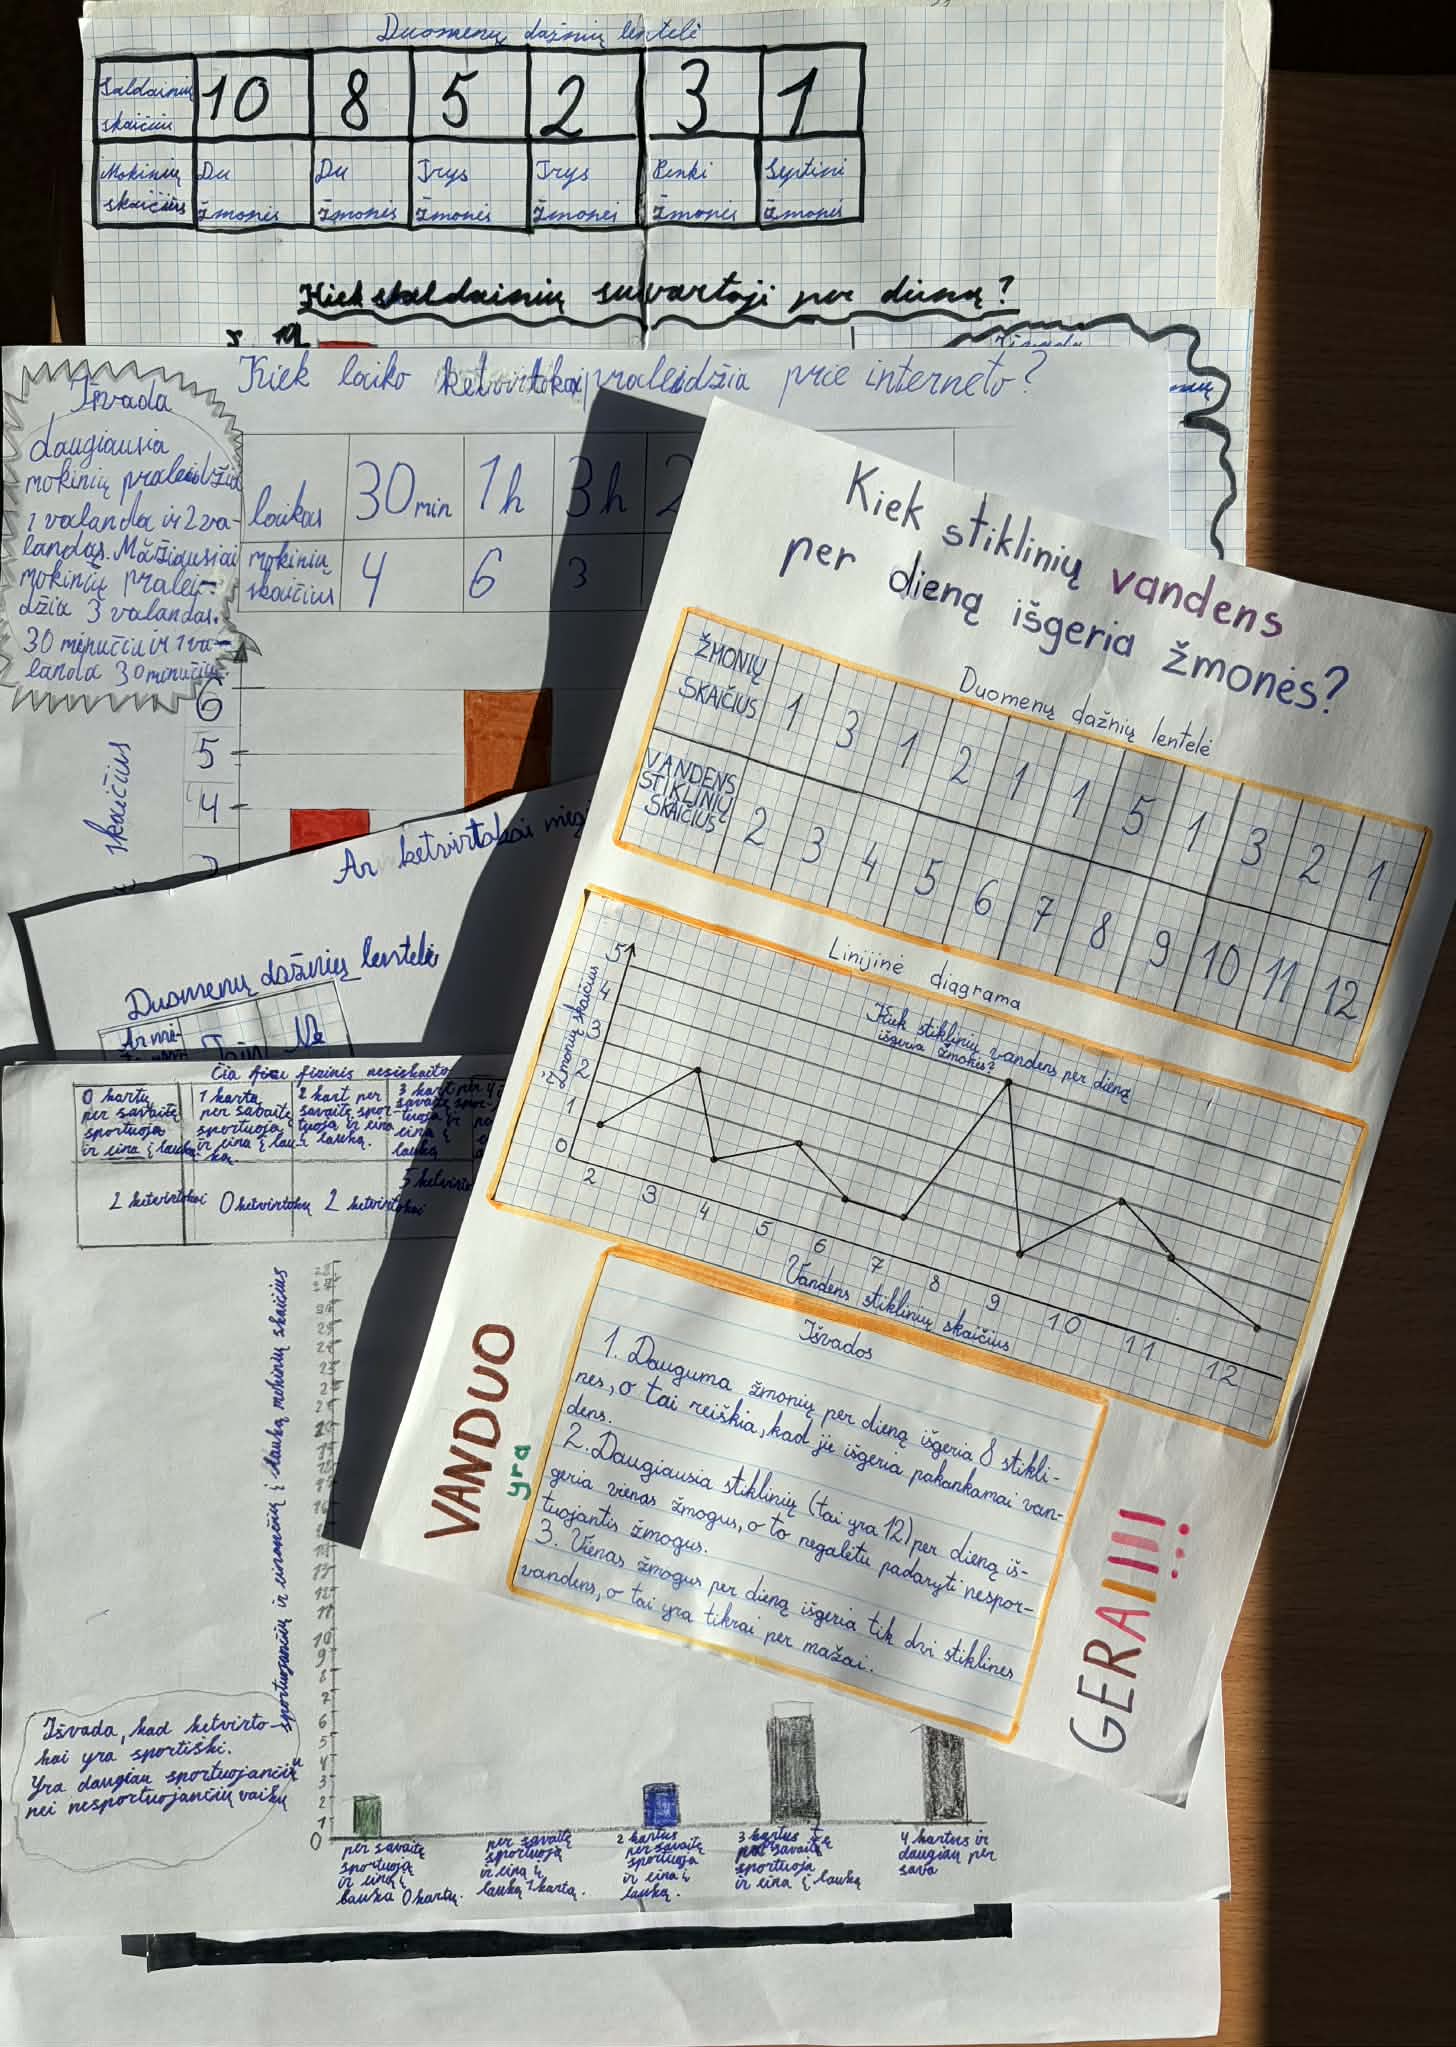 Duomenų dažnių lentelė
Saldainių skaičius 10 8 5 2 3 1
Mokinių skaičius Du žmonės Du žmonės Trys žmonės Trys žmonės Penki žmonės Septini žmonės
Kiek saldainių suvartoji per dieną?
Išvada
Kiek laiko ketvirtokai praleidžia prie interneto?
Išvada
daugiausia
mokinių praleidžia
1 valandą ir 2 va-
landas. Mažiausiai
mokinių pralei-
džia 3 valandas.
30 minučių ir 1 va-
landa 30 minučių.
laikas 30 min 1h 3h 2
mokinių skaičius 4 6 3
6
5
4
skaičius
Ar ketvirtokai mėg
Duomenų dažnių lentelė
Ar mė- Taip Ne
Čia fizinis nesiskaito
0 kartų
per savaitę
sportuoja
ir eina į lauką
1 karta
per savaitę
sportuoja
ir eina į lau-
ką.
2 kart per
savaitę spor-
tuoja ir eina
į lauką.
3 kart per
savaitę spor-
tuoja ir
eina į
lauką
2 ketvirtokai 0 ketvirtokų 2 ketvirtokai 5 ketvirto
sportuojančių ir einančių į lauką mokinių skaičius
12
11
10
9
8
7
6
5
4
3
2
1
0
per savaitę
sportuoja
ir eina į
lauką 0 kartų.
per savaitę
sportuoja
ir eina į
lauką 1 kartą.
2 kartus
per savaitę
sportuoja
ir eina į
lauką.
3 kartus
per savaitę
sportuoja
ir eina į lauką
4 kartus ir
daugiau per
sava
Išvada, kad ketvirto-
kai yra sportiški.
Yra daugiau sportuojančių
nei nesportuojančių vaikų
Kiek stiklinių vandens
per dieną išgeria žmonės?
Duomenų dažnių lentelė
ŽMONIŲ SKAIČIUS 1 3 1 2 1 1 5 1 3 2 1
VANDENS STIKLINIŲ SKAIČIUS 2 3 4 5 6 7 8 9 10 11 12
Linijinė diagrama
Kiek stiklinių vandens per dieną
išgeria žmonės?
Žmonių skaičius
5
4
3
2
1
0
2 3 4 5 6 7 8 9 10 11 12
Vandens stiklinių skaičius
Išvados
1. Dauguma žmonių per dieną išgeria 8 stikli-
nes, o tai reiškia, kad jie išgeria pakankamai van-
dens.
2. Daugiausia stiklinių (tai yra 12) per dieną iš-
geria vienas žmogus, o to negalėtu padaryti nespor-
tuojantis žmogus.
3. Vienas žmogus per dieną išgeria tik dvi stiklines
vandens, o tai yra tikrai per mažai.
VANDUO
yra
GERAI!!!!